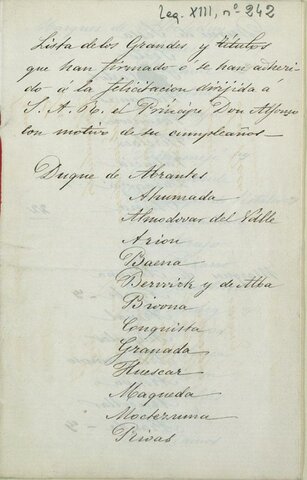 Leg. XIII, nº 242
Lista de los Grandes y titulos
que han firmado o se han adheri
do a la felicitacion dirijida á
S. A. R. el Príncipe Don Alfonso
con motivo de su cumpleaños—
Duque de Abrantes
Ahumada
Almodovar del Valle
Arion
Baena
Berwick y de Alba
Bivona
Conquista
Granada
Huescar
Maqueda
Moctezuma
Rivas